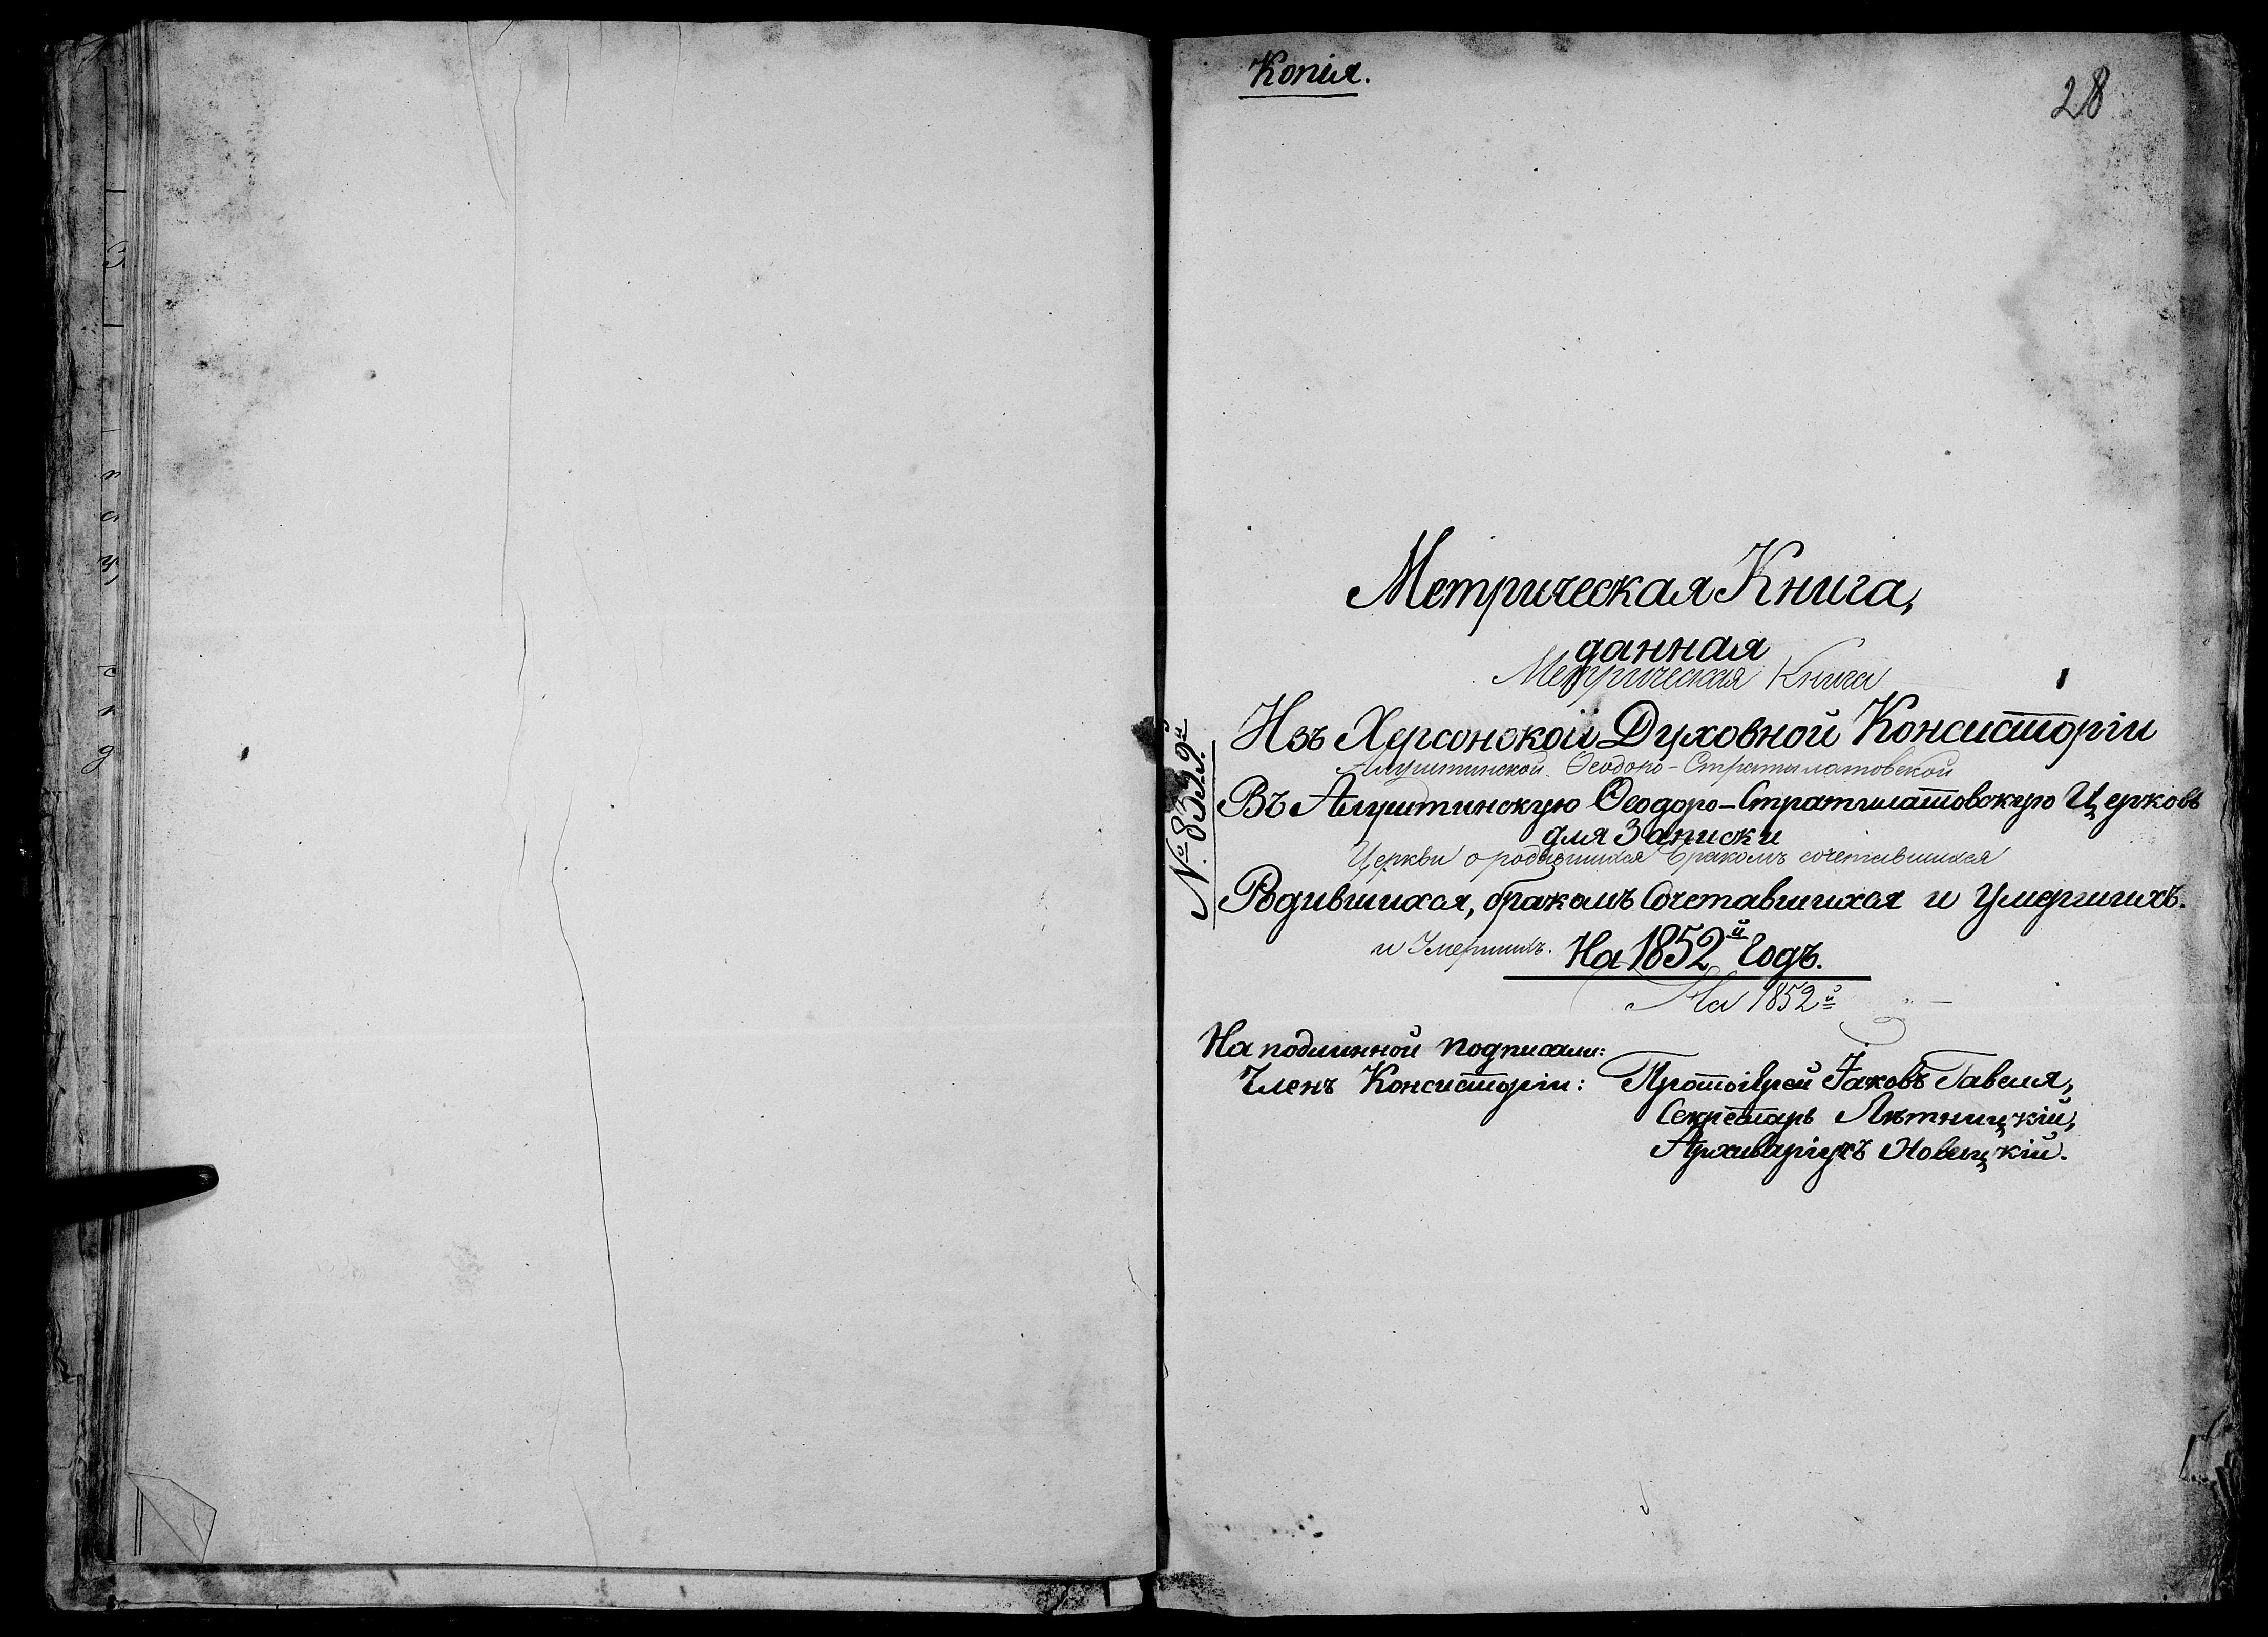 Копія.
28
Метрическая Книга,
данная
Метрическая Книга
Изъ Херсонской Духовной Консисторіи
Алуштинской Ѳеодоро-Стратилатовской
Въ Алуштинскую Ѳеодоро-Стратилатовскую Церковь
для Записки
Церкви о родившихся бракомъ сочетавшихся
Родившихся, бракомъ Сочетавшихся и Умершихъ.
и Умершихъ.
На 1852й Годъ.
На 1852й
№ 8339й
На подлинной подписали:
Членъ Консисторіи: Протоіерей Іаковъ Гавеля,
Секретарь Лѣтницкій,
Архиваріусъ Новицкій.